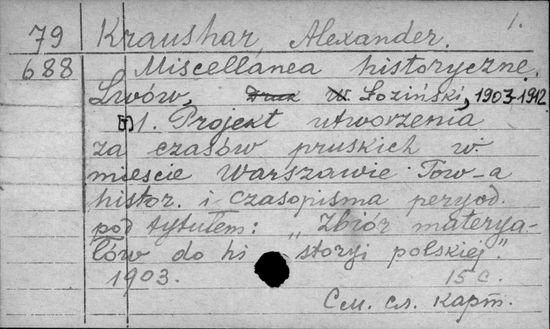 1.
79 Kraushar, Alexander.
688 Miscellanea historyczne.
Lwów, Druk W. Łoziński, 1903-1912.
[+] 1. Projekt utworzenia
za czasów pruskich w
mieście Warszawie Tow-a
histor. i czasopisma peryod.
pod tytułem: „Zbiór materya-
łów do hi storyi polskiej."
1903. 15 c.
См. сл. карт.